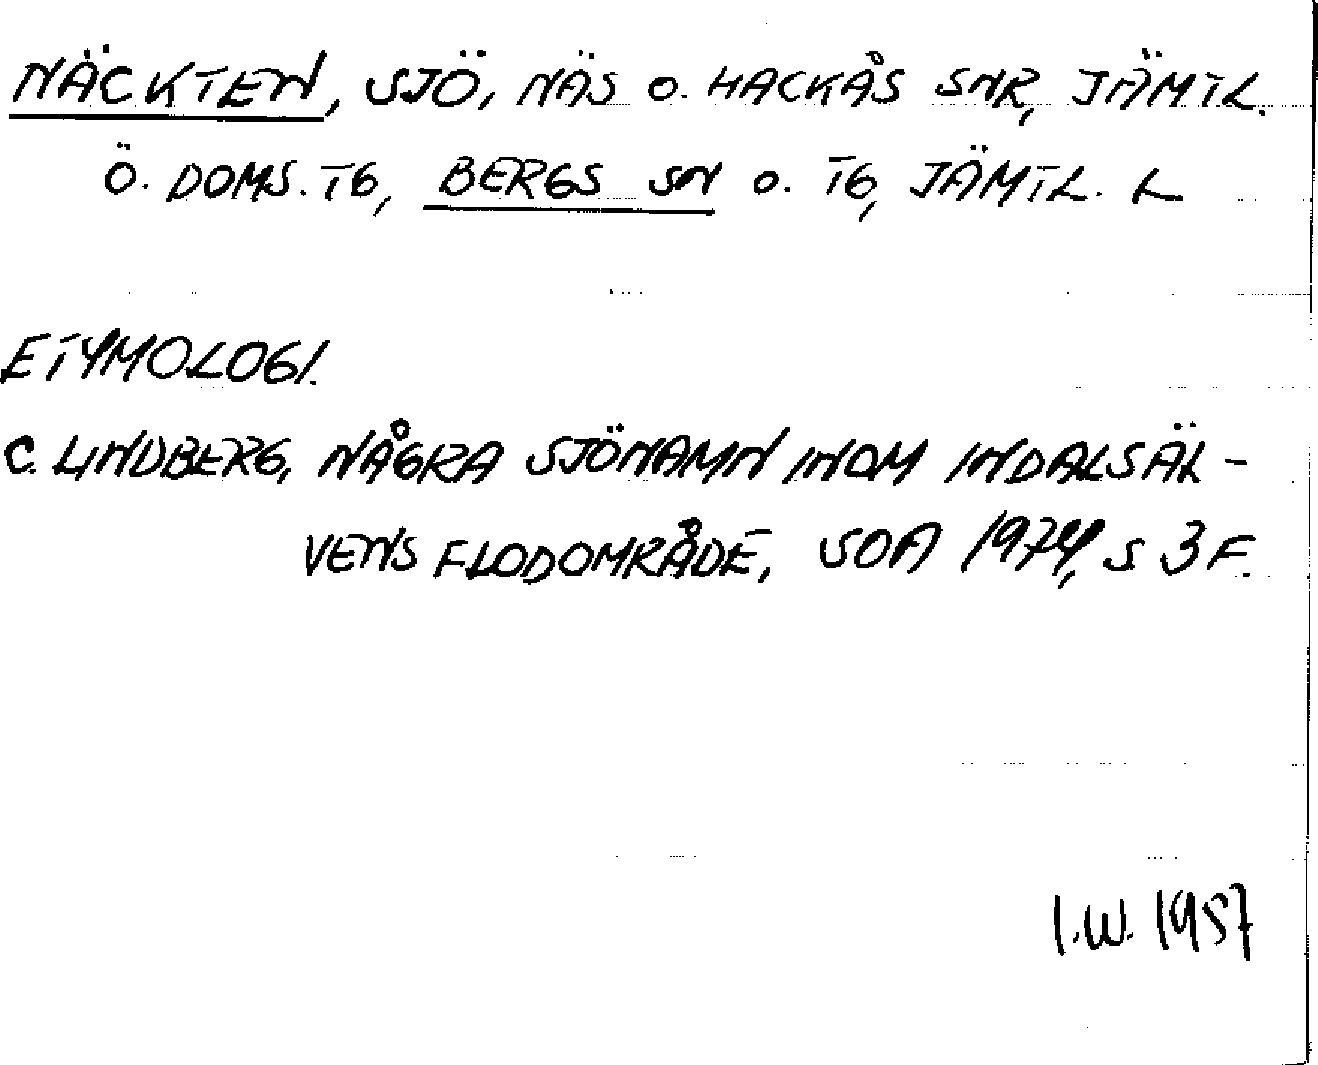 NÄCKTEN, SJÖ, NÄS O. HACKÅS SNR, JÄMTL.
Ö. DOMS. TG, BERGS SN O. TG, JÄMTL. L
ETYMOLOGI.
C. LINDBERG, NÅGRA SJÖNAMN INOM INDALSÄL-
VENS FLODOMRÅDE, SOÅ 1974, S 3 F.
I.W. 1987